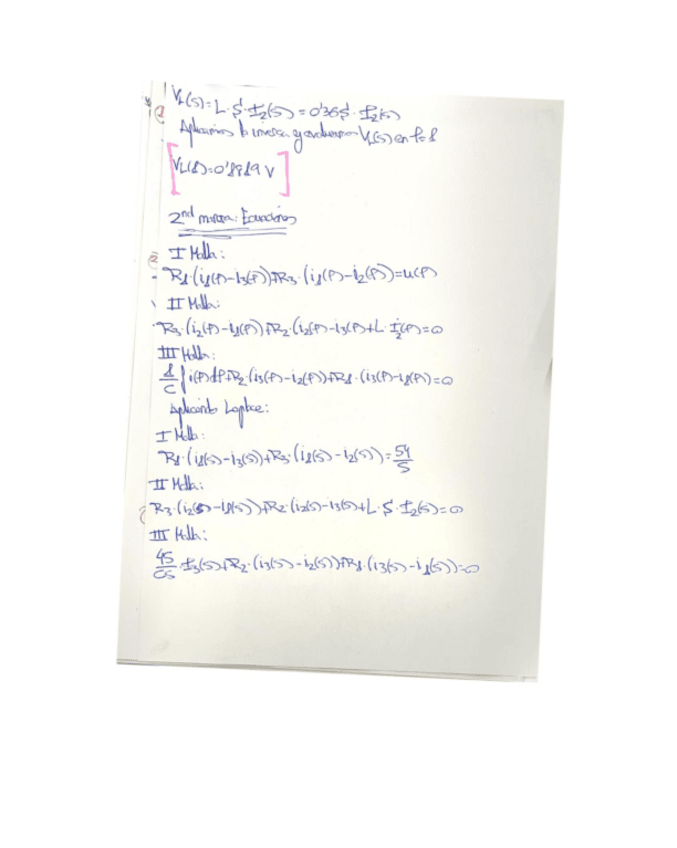 V_L(s)=L·S·I_2(s)=0'36S·I_2(s)
Aplicamos la inversa y evaluamos V_L(s) en t=1
V_L(1)=0'1919 V
2nd manera: Ecuaciones
I Malla:
R1·(i1(t)-i3(t))+R3·(i1(t)-i2(t))=u(t)
II Malla:
R3·(i2(t)-i1(t))+R2·(i2(t)-i3(t)+L·I2(t)=0
III Malla:
1/C ∫i(t)dt+R2·(i3(t)-i2(t))+R1·(i3(t)-i1(t))=0
Aplicando Laplace:
I Malla:
R1·(i1(s)-i3(s))+R3·(i1(s)-i2(s))=54/S
II Malla:
R3·(i2(s)-i1(s))+R2·(i2(s)-i3(s)+L·S·I2(s)=0
III Malla:
·I3(s)+R2·(i3(s)-i2(s))+R1·(i3(s)-i1(s))=0